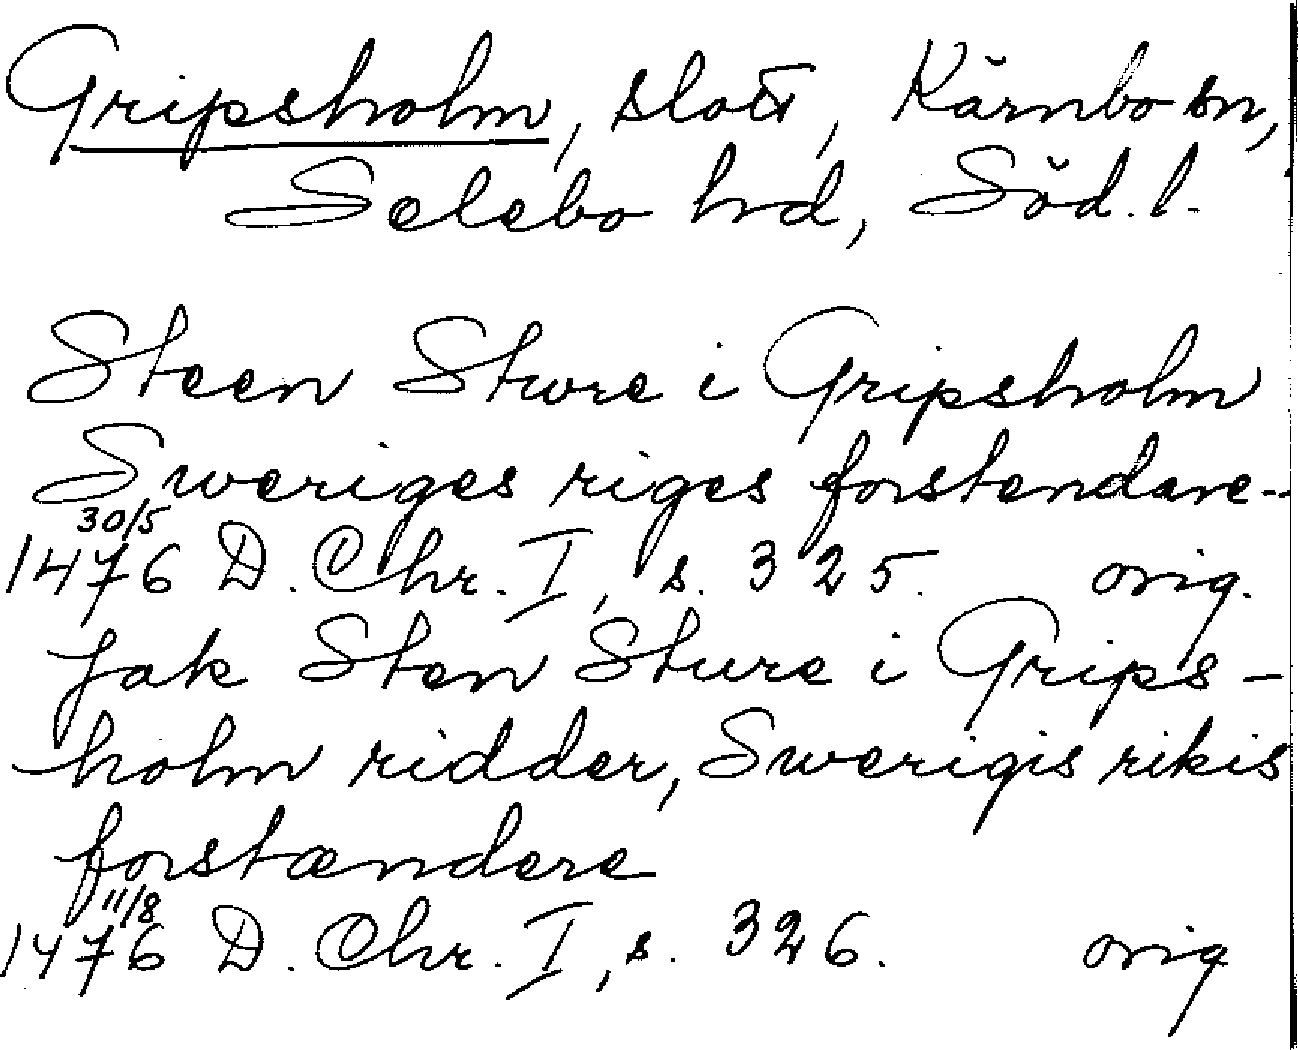 Gripsholm, slott, Kärnbo sn,
Selebo hd, Söd. l.
Steen Stwre i Gripsholm
Sweriges riges forstendare--
30/5
1476 D. Chr. I, s. 325. orig.
Jak Sten Sture i Grips-
holm ridder, Swerigis rikis
forstændere
11/8
1476 D. Chr. I, s. 326. orig